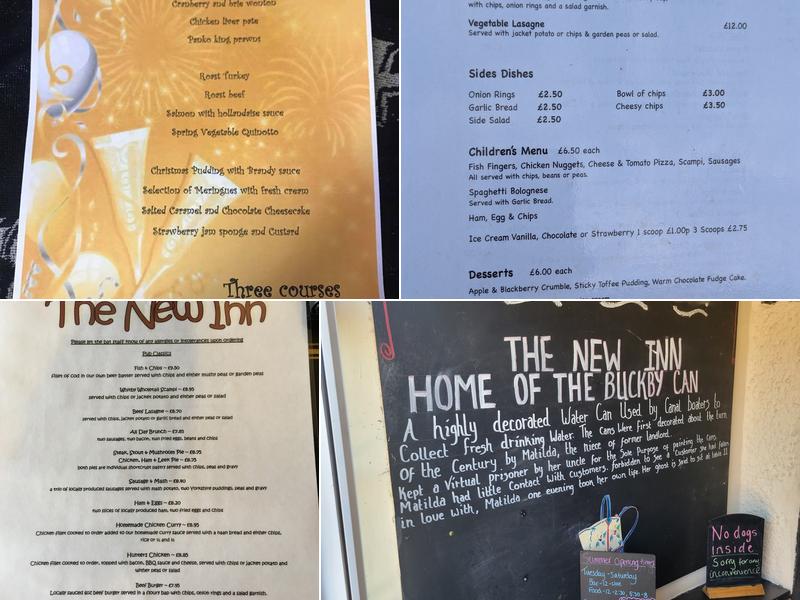 Cranberry and brie wonton
Chicken liver pate
Panko king prawns
Roast Turkey
Roast beef
Salmon with hollandaise sauce
Spring Vegetable Quinotto
Christmas Pudding with Brandy sauce
Selection of Meringues with fresh cream
Salted Caramel and Chocolate Cheesecake
Strawberry jam sponge and Custard
Three courses
with chips, onion rings and a salad garnish.
Vegetable Lasagne £12.00
Served with jacket potato or chips & garden peas or salad.
Sides Dishes
Onion Rings £2.50 Bowl of chips £3.00
Garlic Bread £2.50 Cheesy chips £3.50
Side Salad £2.50
Children's Menu £6.50 each
Fish Fingers, Chicken Nuggets, Cheese & Tomato Pizza, Scampi, Sausages
All served with chips, beans or peas.
Spaghetti Bolognese
Served with Garlic Bread.
Ham, Egg & Chips
Ice Cream Vanilla, Chocolate or Strawberry 1 scoop £1.00p 3 Scoops £2.75
Desserts £6.00 each
Apple & Blackberry Crumble, Sticky Toffee Pudding, Warm Chocolate Fudge Cake.
The New Inn
Please let the bar staff know of any allergies or intolerances upon ordering
Pub Classics
Fish & Chips ~ £9.50
fillet of cod in our own beer batter served with chips and either mushy peas or garden peas
Whitby Wholetail Scampi ~ £8.95
served with chips or jacket potato and either peas or salad
Beef Lasagne ~ £8.70
served with chips, jacket potato or garlic bread and either peas or salad
All Day Brunch ~ £7.85
two sausages, two bacon, two fried eggs, beans and chips
Steak, Stout & Mushroom Pie ~ £8.95
Chicken, Ham & Leek Pie ~ £8.95
both pies are individual shortcrust pastry served with chips, peas and gravy
Sausage & Mash ~ £8.40
a trio of locally produced sausages served with mash potato, two Yorkshire puddings, peas and gravy
Ham & Eggs ~ £8.20
two slices of locally produced ham, two fried eggs and chips
Homemade Chicken Curry ~ £8.95
Chicken fillet cooked to order added to our homemade curry sauce served with a naan bread and either chips,
rice or ½ and ½
Hunters Chicken ~ £8.85
Chicken cooked to order, topped with bacon, BBQ sauce and cheese, served with chips or jacket potato and
wither peas or salad
Beef Burger ~ £7.95
Locally sauced 6oz beef burger served in a floury bap with chips, onion rings and a salad garnish.
THE NEW INN
HOME OF THE BUCKBY CAN
A highly decorated Water Can Used by Canal boaters to
Collect fresh drinking Water. The cans Were first decorated about the turn
of the Century, by Matilda, the niece of former landlord.
Kept a Virtual prisoner by her uncle for the Sole Purpose of painting the Cans.
Matilda had little Contact With Customers. Forbidden to See a Customer She had fallen
in love with, Matilda one evening took her own life. Her ghost is said to sit at table 11
Summer Opening times
Tuesday - Saturday
Bar - 12 -
Food - 12 - 2.30, 5.30 - 8
No dogs
Inside
Sorry for any
inconvenience